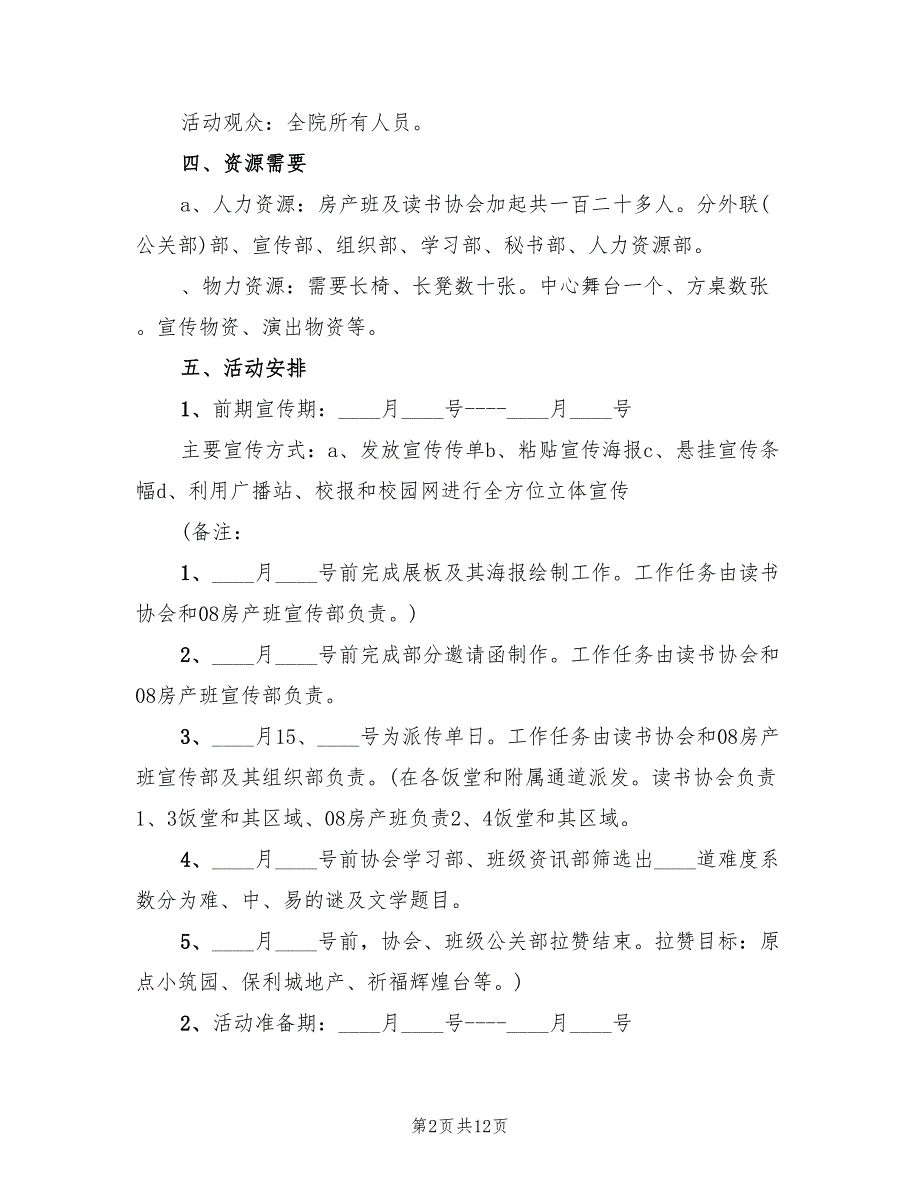 活动观众：全院所有人员。
四、资源需要
a、人力资源：房产班及读书协会加起共一百二十多人。分外联(
公关部)部、宣传部、组织部、学习部、秘书部、人力资源部。
、物力资源：需要长椅、长凳数十张。中心舞台一个、方桌数张
。宣传物资、演出物资等。
五、活动安排
1、前期宣传期：____月____号----____月____号
主要宣传方式：a、发放宣传传单b、粘贴宣传海报c、悬挂宣传条
幅d、利用广播站、校报和校园网进行全方位立体宣传
(备注：
1、____月____号前完成展板及其海报绘制工作。工作任务由读书
协会和08房产班宣传部负责。)
2、____月____号前完成部分邀请函制作。工作任务由读书协会和
08房产班宣传部负责。
3、____月15、____号为派传单日。工作任务由读书协会和08房产
班宣传部及其组织部负责。(在各饭堂和附属通道派发。读书协会负责
1、3饭堂和其区域、08房产班负责2、4饭堂和其区域。
4、____月____号前协会学习部、班级资讯部筛选出____道难度系
数分为难、中、易的谜及文学题目。
5、____月____号前，协会、班级公关部拉赞结束。拉赞目标：原
点小筑园、保利城地产、祈福辉煌台等。)
2、活动准备期：____月____号----____月____号
第2页共12页